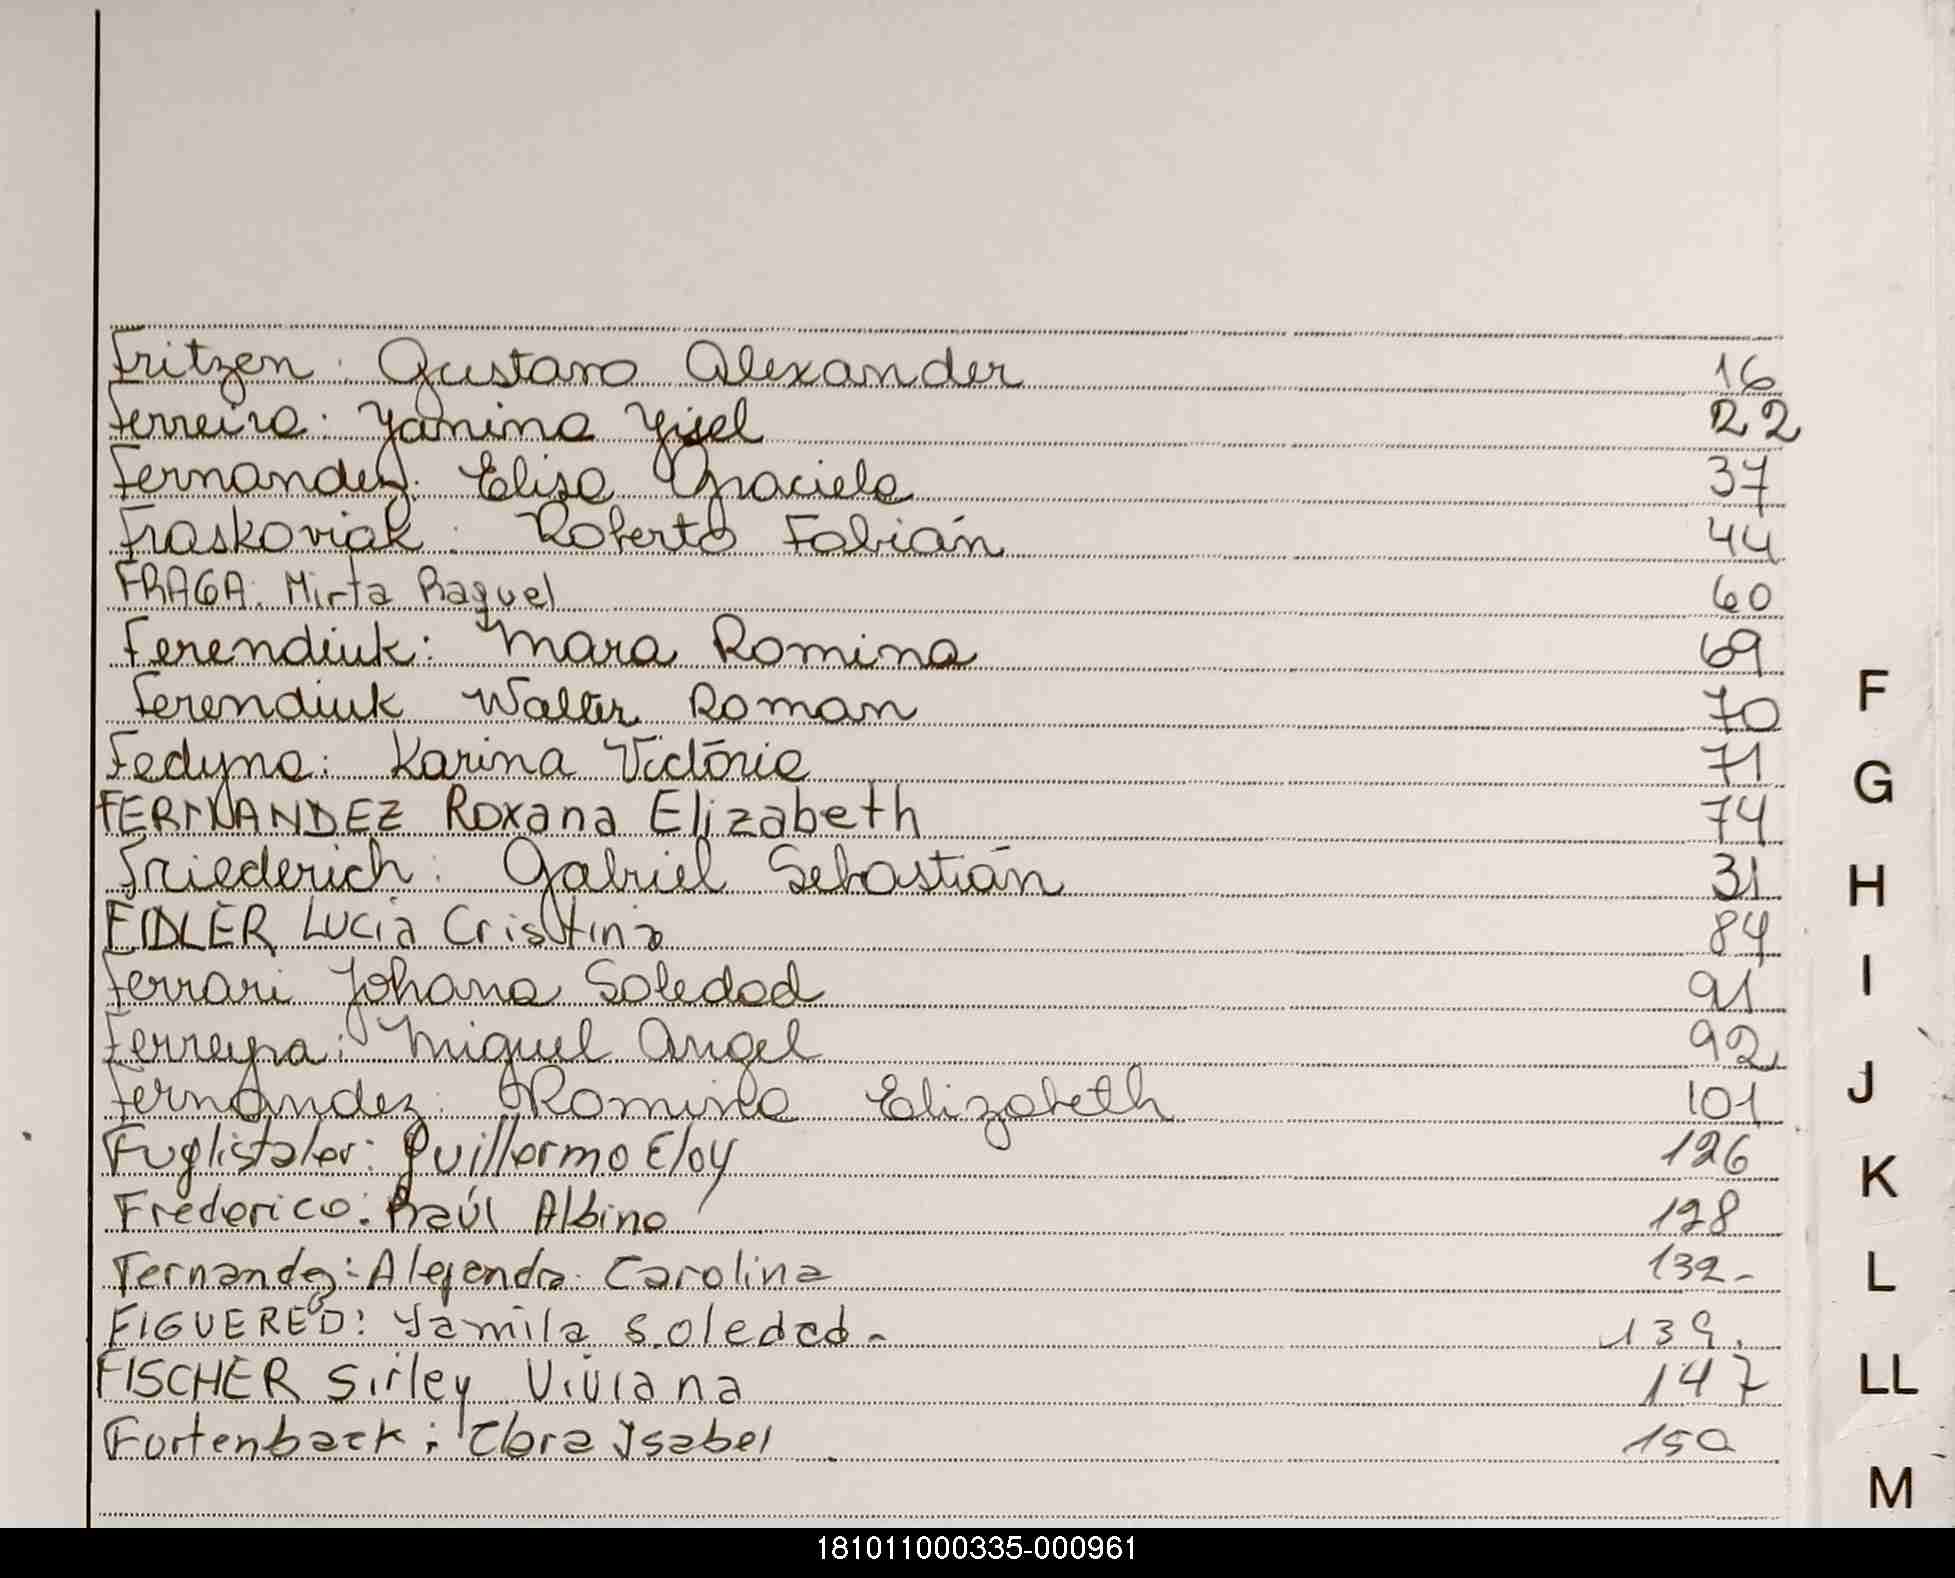 Fritzen: Gustavo Alexander 16
Ferreira: Yamina Yisel 22
Fernandez: Elisa Graciela 37
Fraskoviak: Roberto Fabián 44
FRAGA: Mirta Raquel 60
Ferendiuk: Mara Romina 69
Ferendiuk Walter Roman 70
Fedyna: Karina Victória 71
FERNANDEZ Roxana Elizabeth 74
Friederich: Gabriel Sebastián 31
FIDLER Lucia Cristina 84
Ferrari Johana Soledad 91
Ferreyra: Miguel Angel 92
Fernández: Romina Elizabeth 101
Fuglistaler: Guillermo Eloy 126
Frederico: Raúl Albino 128
Fernandez: Alejandra Carolina 132-
FIGUEREDO: Yamila Soledad- 139.
FISCHER Sirley Viviana 147
Furtenback: Clara Ysabel 150
F
G
H
I
J
K
L
LL
M
181011000335-000961